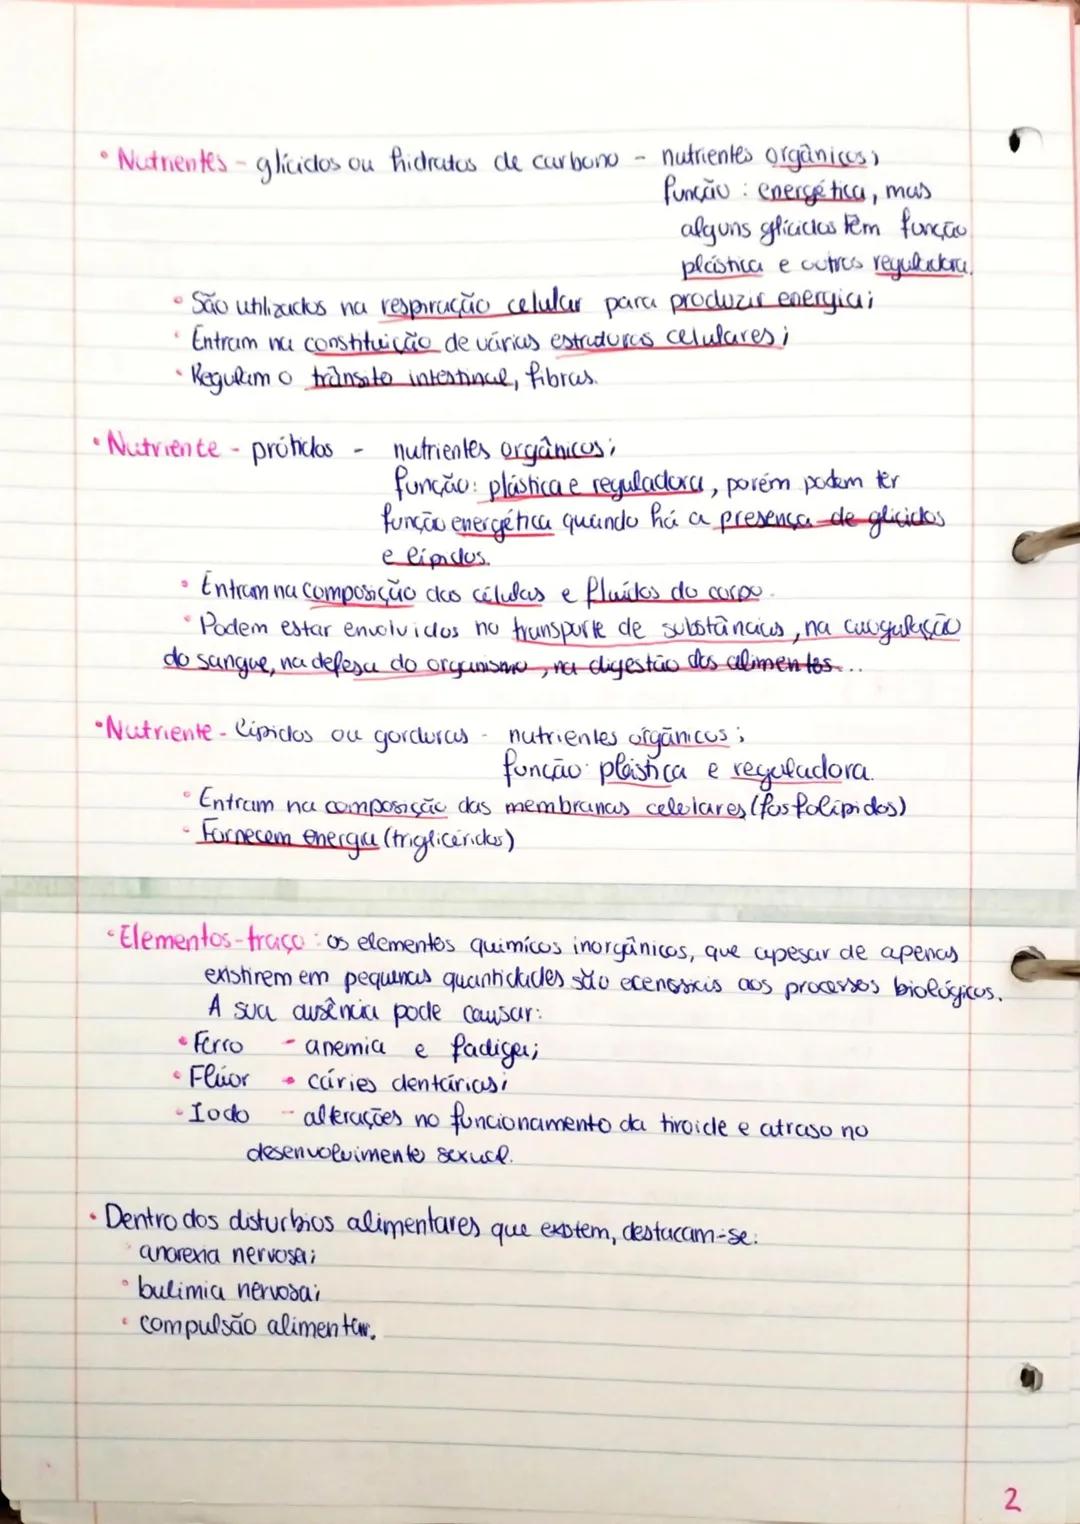 • Nutrientes - glícidos ou hidratos de carbono - nutrientes orgânicos;
função: energética, mas
alguns glícidos têm função
plástica e outros reguladora.
• São utilizados na respiração celular para produzir energia;
• Entram na constituição de várias estruturas celulares;
• Regulam o trânsito intestinal, fibras.
• Nutriente - prótidos - nutrientes orgânicos;
função: plástica e reguladora, porém podem ter
função energética quando há a presença de glícidos
e lípidos.
• Entram na composição das células e fluídos do corpo.
• Podem estar envolvidos no transporte de substâncias, na cuogulação
do sangue, na defesa do organismo, na digestão dos alimentos...
• Nutriente - lípidos ou gorduras - nutrientes orgânicos;
função: plástica e reguladora.
• Entram na composição das membranas celulares (fosfolípidos)
• Fornecem energia (triglicéridos)
• Elementos-traço: os elementos químicos inorgânicos, que apesar de apenas
existirem em pequenas quantidades são ecenssiais aos processos biológicos.
A sua ausência pode causar:
• Ferro - anemia e fadiga;
• Flúor • cáries dentárias;
• Iodo - alterações no funcionamento da tiroide e atraso no
desenvolvimento sexual.
• Dentro dos disturbios alimentares que existem, destacam-se:
• anorexia nervosa;
• bulimia nervosa;
• compulsão alimentar.
2